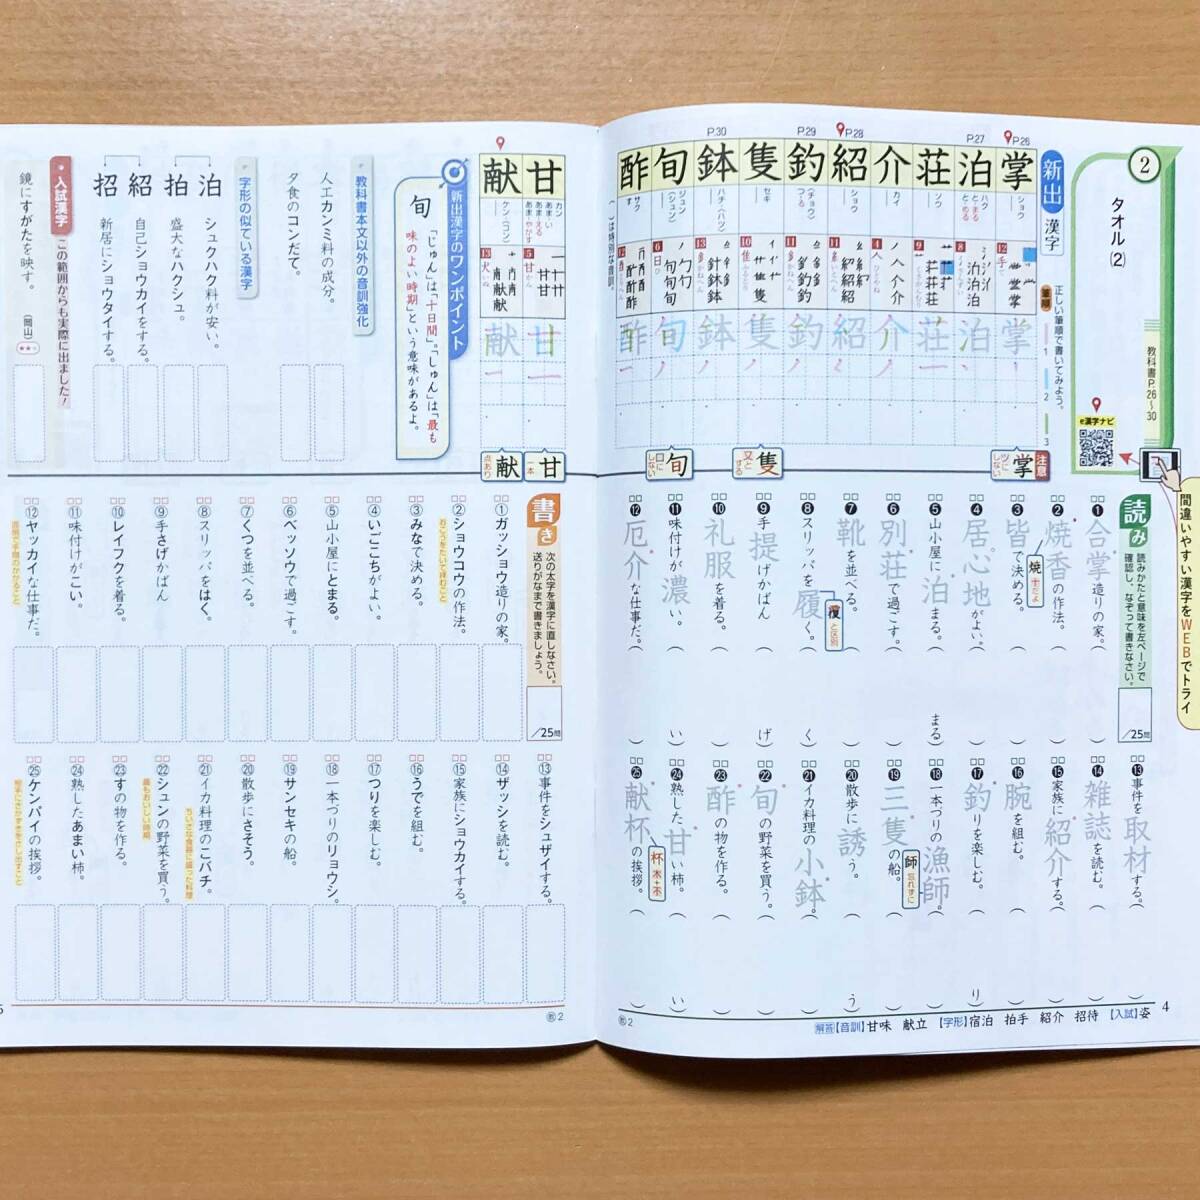 2
タオル⑵
教科書P.26～30
e漢字ナビ
間違いやすい漢字をWEBでトライ
新出漢字
筆順
正しい筆順で書いてみよう。
1
2
3
P.26
P.27
P.28
P.29
P.30
掌
ショウ
泊
ハク
と・まる
と・める
荘
ソウ
介
カイ
紹
ショウ
釣
(チョウ)
つ・る
隻
セキ
鉢
ハチ・(ハツ)
旬
ジュン
(シュン)
酢
サク
す
( )は特別な音訓。
注意
掌
ツにしない
隻
又とする
旬
口にしない
読み
読みかたと意味を左ページで確認し、なぞって書きなさい。
／25問
❶合掌造りの家。
❷焼香の作法。
焼
❸皆で決める。
❹居心地がよい。
❺山小屋に泊まる。
まる
❻別荘で過ごす。
❼靴を並べる。
❽スリッパを履く。
く
と区別
❾手提げかばん
げ
❿礼服を着る。
⓫味付けが濃い。
い
⓬厄介な仕事だ。
⓭事件を取材する。
⓮雑誌を読む。
⓯家族に紹介する。
⓰腕を組む。
⓱釣りを楽しむ。
り
⓲一本づりの漁師。
師
忘れずに
⓳三隻の船。
⓴散歩に誘う。
う
㉑イカ料理の小鉢。
㉒旬の野菜を買う。
㉓酢の物を作る。
㉔熟した甘い柿。
い
㉕献杯の挨拶。
杯 木＋不
解答【音訓】甘味 献立 【字形】宿泊 拍手 紹介 招待 【入試】姿
4
教2
甘
カン
あま・い
あま・える
あま・やかす
献
ケン・(コン)
甘
一本
献
点あり
新出漢字のワンポイント
旬
「じゅん」は「十日間」。「しゅん」は「最も味のよい時期」という意味があるよ。
教科書本文以外の音訓強化
人工カンミ料の成分。
夕食のコンだて。
字形の似ている漢字
泊
シュクハク料が安い。
拍
盛大なハクシュ。
紹
自己ショウカイをする。
招
新居にショウタイする。
入試漢字
この範囲からも実際に出ました！
鏡にすがたを映す。
(岡山)
書き
次の太字を漢字に直しなさい。送りがなまで書きましょう。
／25問
①ガッショウ造りの家。
②ショウコウの作法。
おこうをたいて拝むこと
③みなで決める。
④いごこちがよい。
⑤山小屋にとまる。
⑥ベッソウで過ごす。
⑦くつを並べる。
⑧スリッパをはく。
⑨手さげかばん
⑩レイフクを着る。
⑪味付けがこい。
⑫ヤッカイな仕事だ。
面倒で手間のかかること
⑬事件をシュザイする。
⑭ザッシを読む。
⑮家族にショウカイする。
⑯うでを組む。
⑰つりを楽しむ。
⑱一本づりのリョウシ。
⑲サンセキの船。
⑳散歩にさそう。
㉑イカ料理のこバチ。
ちいさな食器に盛った料理
㉒シュンの野菜を買う。
最もおいしい時期
㉓すの物を作る。
㉔熟したあまい柿。
㉕ケンパイの挨拶。
相手にさかずきをさし出すこと
教2
5